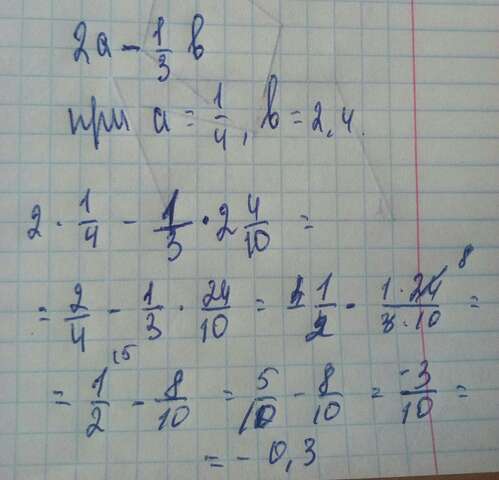 2a - 1/3 b
при a = 1/4, b = 2,4.
2 · 1/4 - 1/3 · 2 4/10 =
= 2/4 - 1/3 · 24/10 = 1/2 - 1·24/3·10 8 =
= 1/2 15 - 8/10 = 5/10 - 8/10 = -3/10 =
= - 0,3